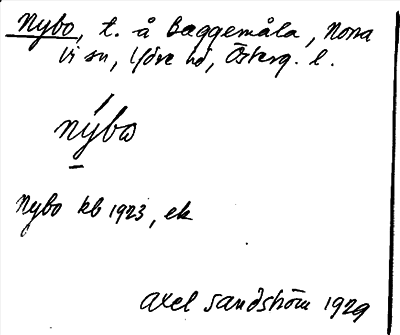 Nybo, t. å Baggemåla, Norra
Vi sn, Ydre hd, Österg. l.
nýbo
Nybo kb 1923, ek
Axel Sandström 1929